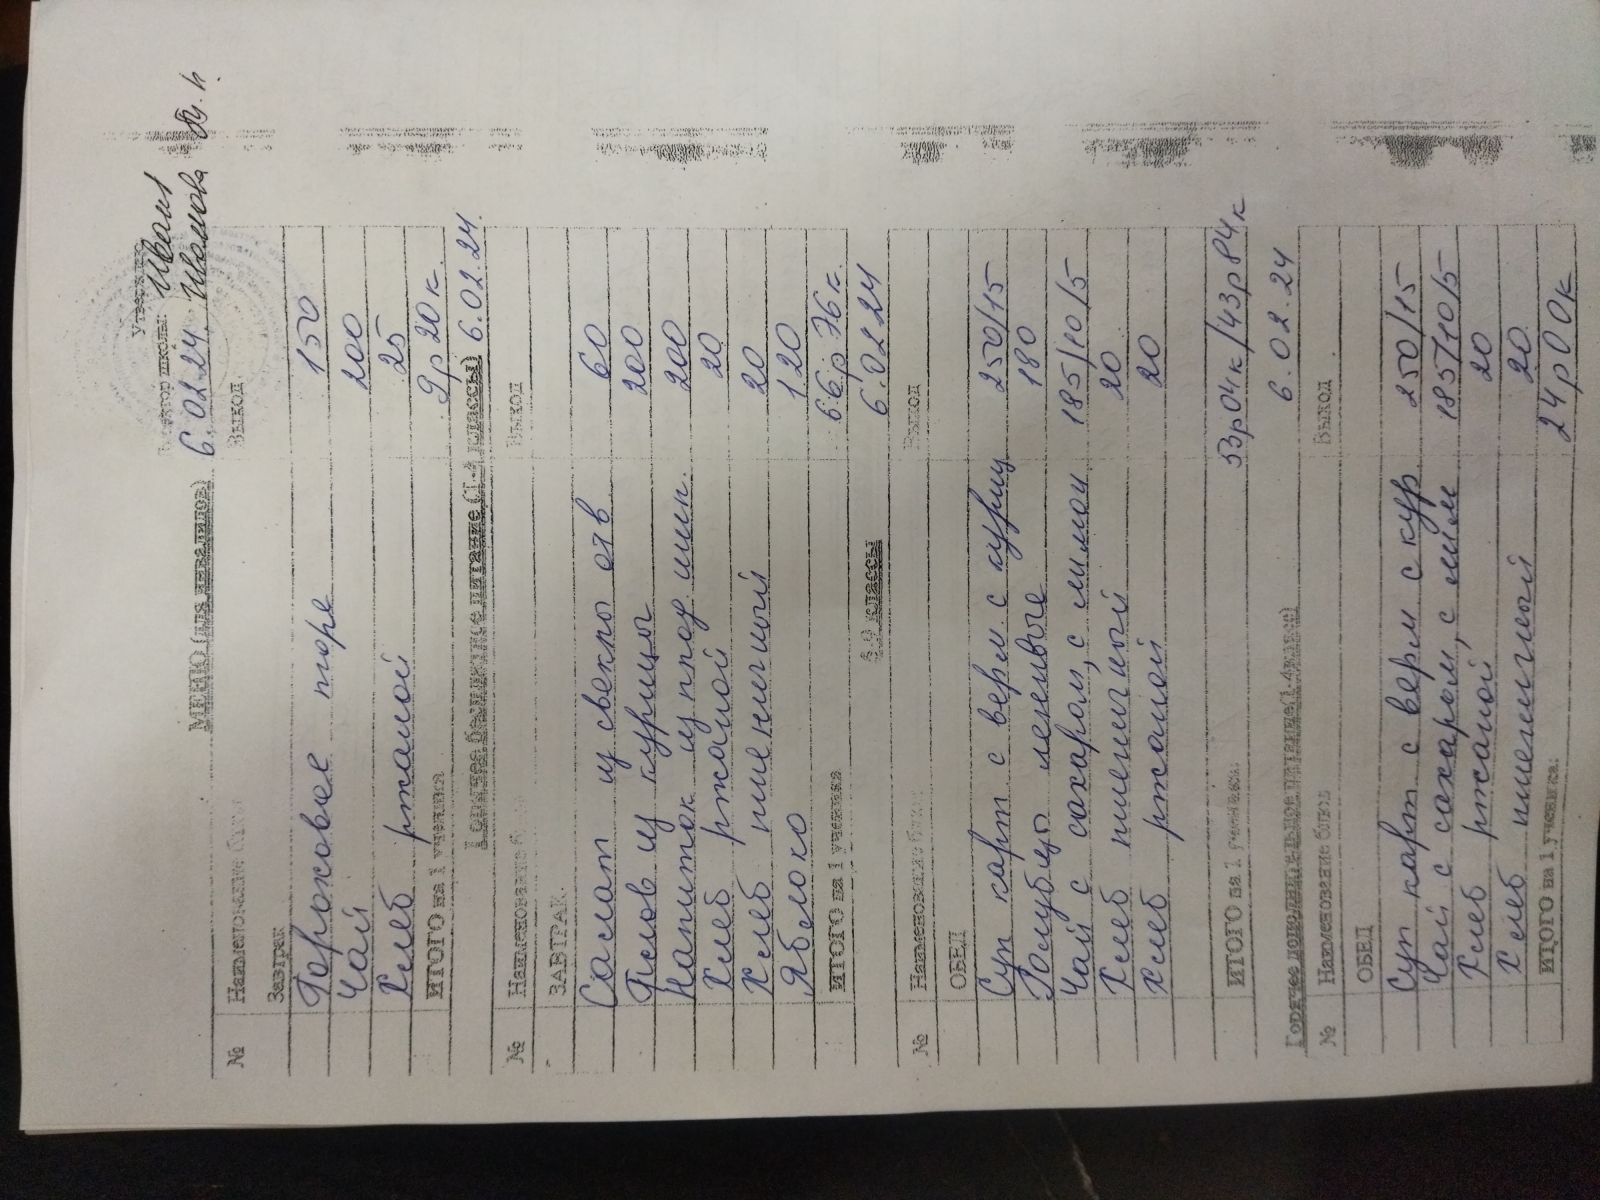 Утверждаю
Директор школы:
6.02.24. Иванова
МЕНЮ (для инвалидов)
№ Наименование блюд Выход
Завтрак
Гороховое пюре 150
Чай 200
Хлеб ржаной 25
ИТОГО на 1 ученика 9р 20к.
Горячее бесплатное питание (1-4 классы) 6.02.24.
№ Наименование Выход
ЗАВТРАК.
Салат из свеклы отв 60
Плов из курицы 200
Напиток из плод. шип. 200
Хлеб ржаной 20
Хлеб пшеничный 20
Яблоко 120
ИТОГО на 1 ученика 66р 76к.
5-9 классы 6.02.24
№ Наименование блюд Выход
ОБЕД
Суп карт с верм с куриц 250/15
Голубцы ленивые 180
Чай с сахаром, с лимон 185/10/5
Хлеб пшеничный 20
Хлеб ржаной 20
ИТОГО на 1 ученика: 53р04к/43р84к
Горячее дополнительное питание(1-4класс) 6.02.24
№ Наименование блюд Выход
ОБЕД
Суп карт с верм с кур 250/15
Чай с сахаром, с лим 185/10/5
Хлеб ржаной 20
Хлеб пшеничный 20
ИТОГО на 1 ученика: 24р00к